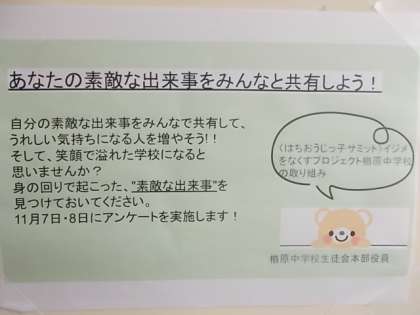 あなたの素敵な出来事をみんなと共有しよう！
自分の素敵な出来事をみんなで共有して、
うれしい気持ちになる人を増やそう！！
そして、笑顔で溢れた学校になると
思いませんか？
身の回りで起こった、"素敵な出来事"を
見つけておいてください。
11月7日・8日にアンケートを実施します！
〈はちおうじっ子サミット〉イジメ
をなくすプロジェクト楢原中学校
の取り組み
楢原中学校生徒会本部役員